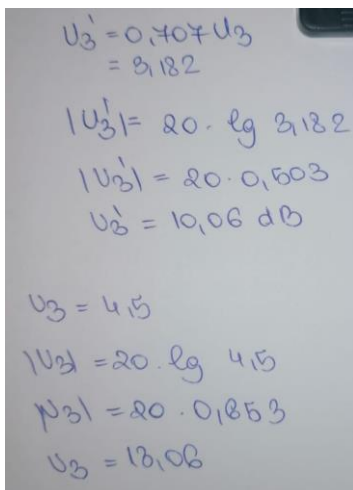 U3' = 0,707U3
= 3,182
|U3'| = 20 · lg 3,182
|U3'| = 20 · 0,503
U3' = 10,06 dB
U3 = 4,5
|U3| = 20 · lg 4,5
|U3| = 20 · 0,653
U3 = 13,06